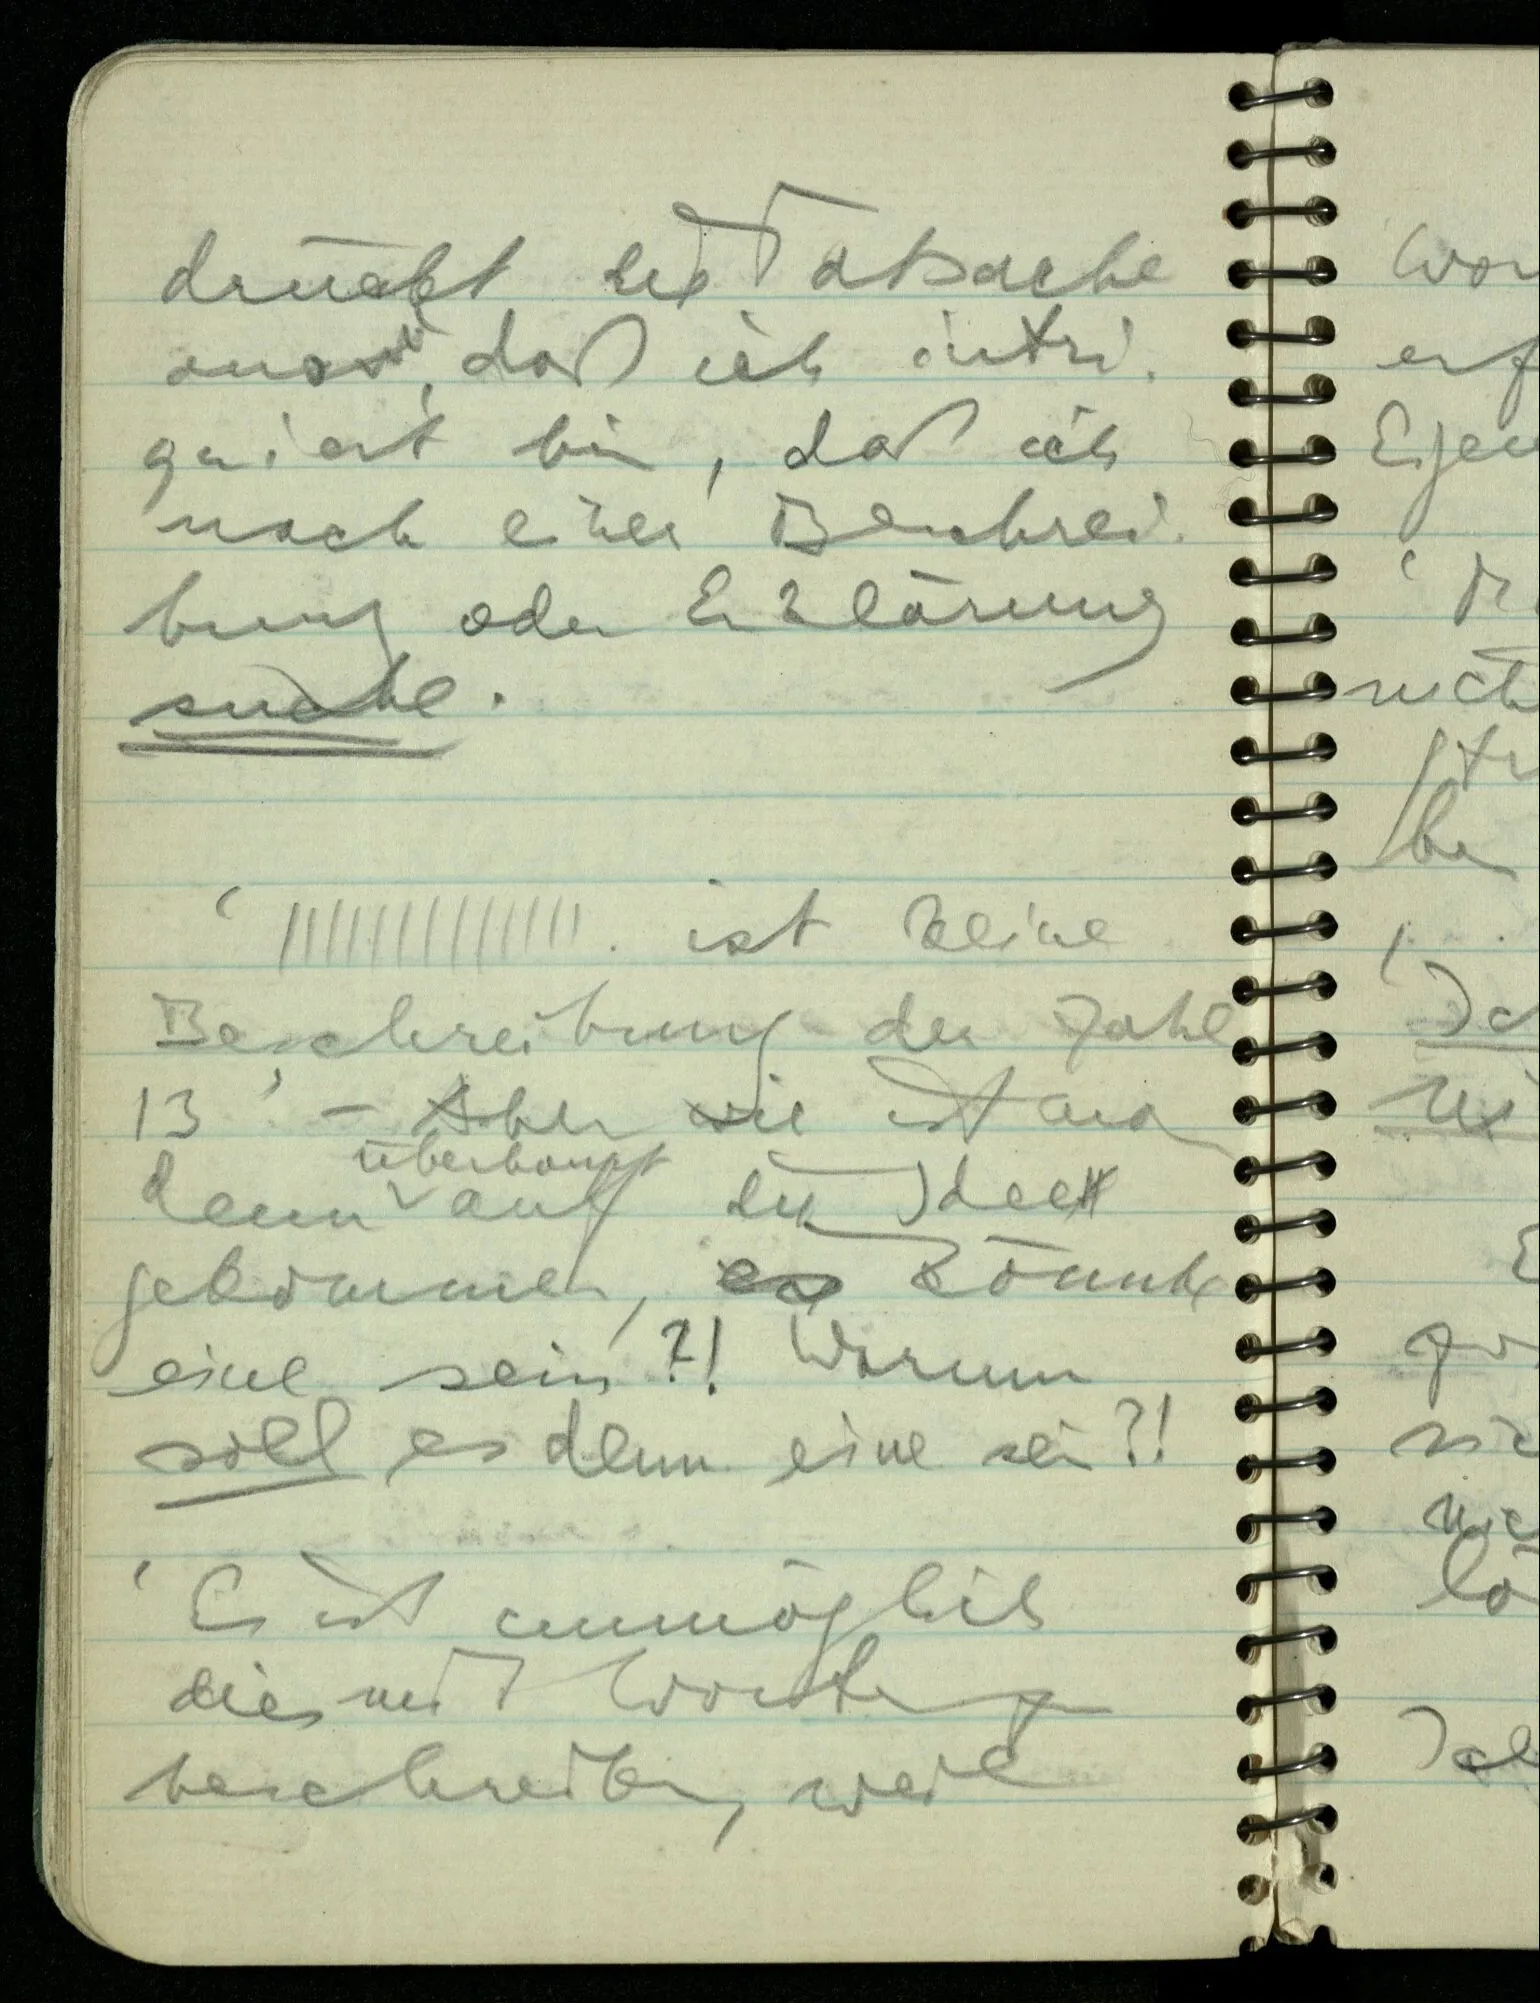 drückt die Tatsache
aus, daß ich intri-
guiert bin, daß ich
nach einer Beschrei-
bung oder Erklärung
suche.
‘ ||||||||||||| . ist keine
Beschreibung der Zahl
13 ’ – Aber wie ist man
denn überhaupt auf die Idee
gekommen, es könnte
eine sein?! Warum
soll es denn eine sein?!
‘Es ist unmöglich
dies mit Worten zu
beschreiben, weil